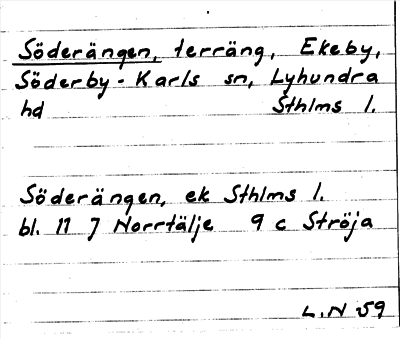 Söderängen, terräng, Ekeby,
Söderby-Karls sn, Lyhundra
hd Sthlms l.
Söderängen, ek Sthlms l.
bl. 11 J Norrtälje 9 c Ströja
L.N 59